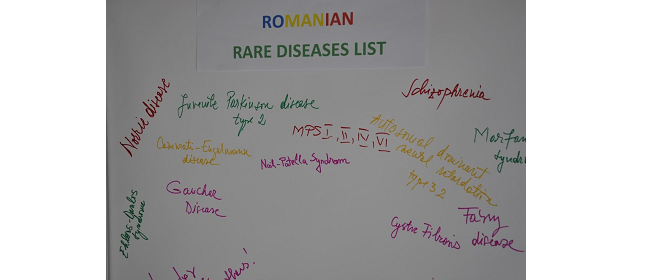 ROMANIAN
RARE DISEASES LIST
Norrie disease
Juvenile Parkinson disease
type 2
Schizophrenia
MPS I, II, IV, VI
Autosomal dominant
retardation
type 32
Marfan
Camurati-Engelmann
disease
Nail-Patella-Syndrom
Gaucher
Disease
Ehlers-Danlos
Syndrome
Fabry
disease
Cystic Fibrosis